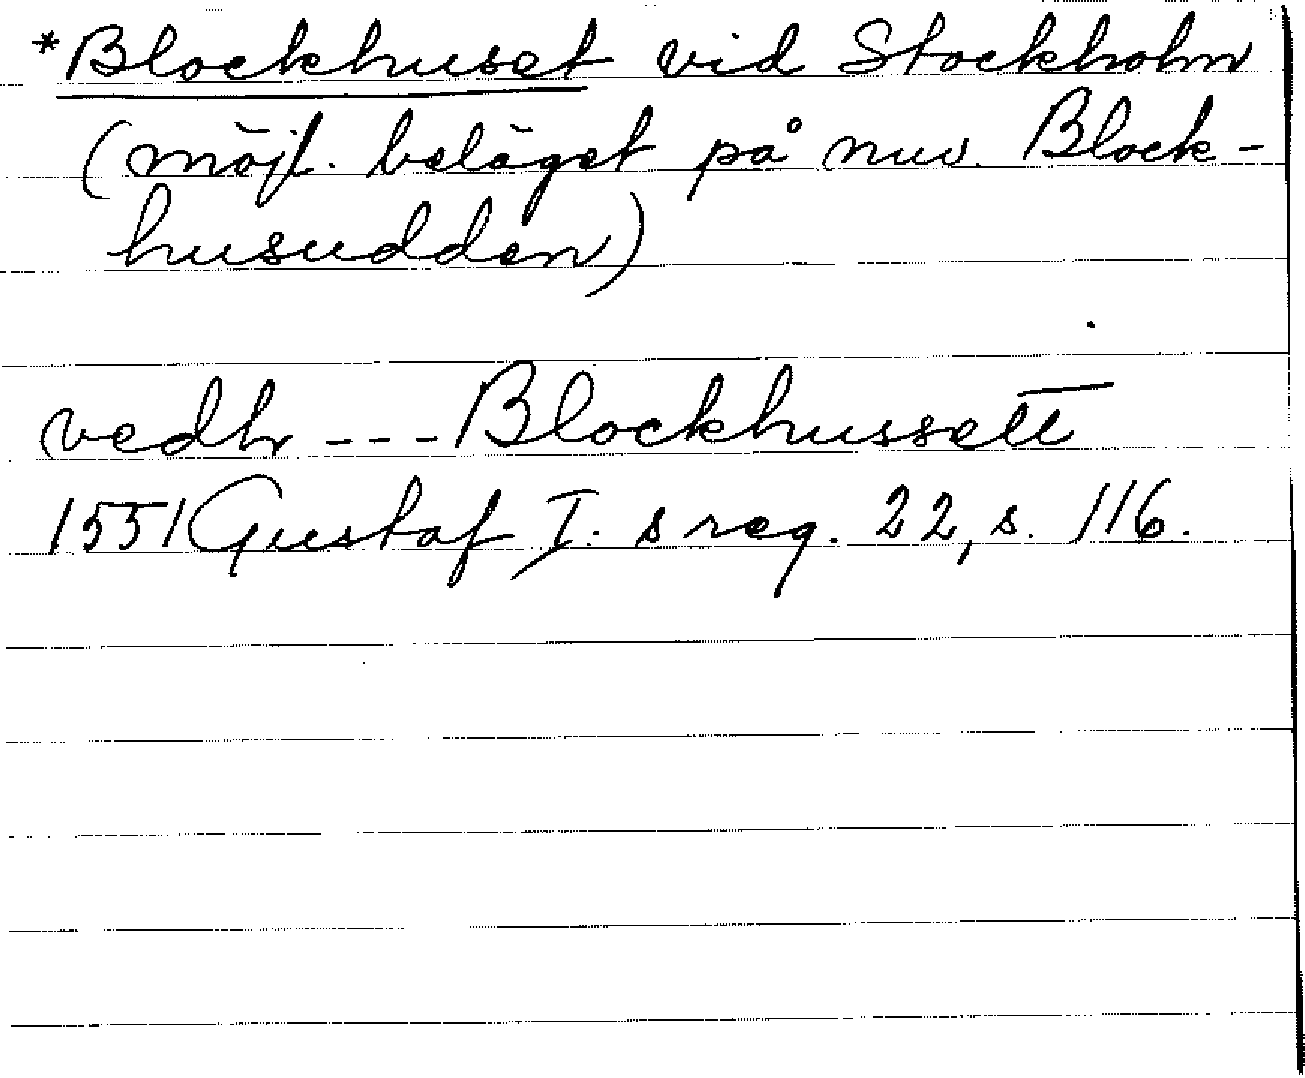 *Blockhuset vid Stockholm
(möjl. beläget på nuv. Block-
husudden)
vedh --- Blockhussett
1551 Gustaf I:s reg. 22, s. 116.